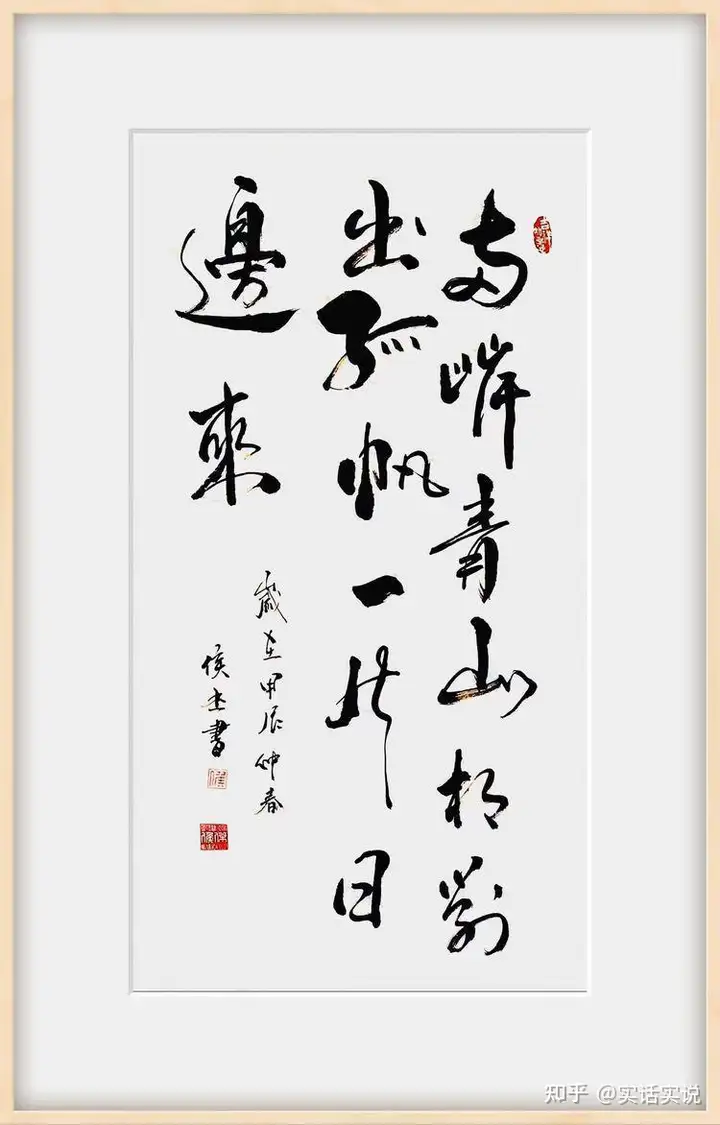 両岸青山相對
出孤帆一片日
邊来
歲在甲辰仲春
侯杰書
知乎 @实话实说